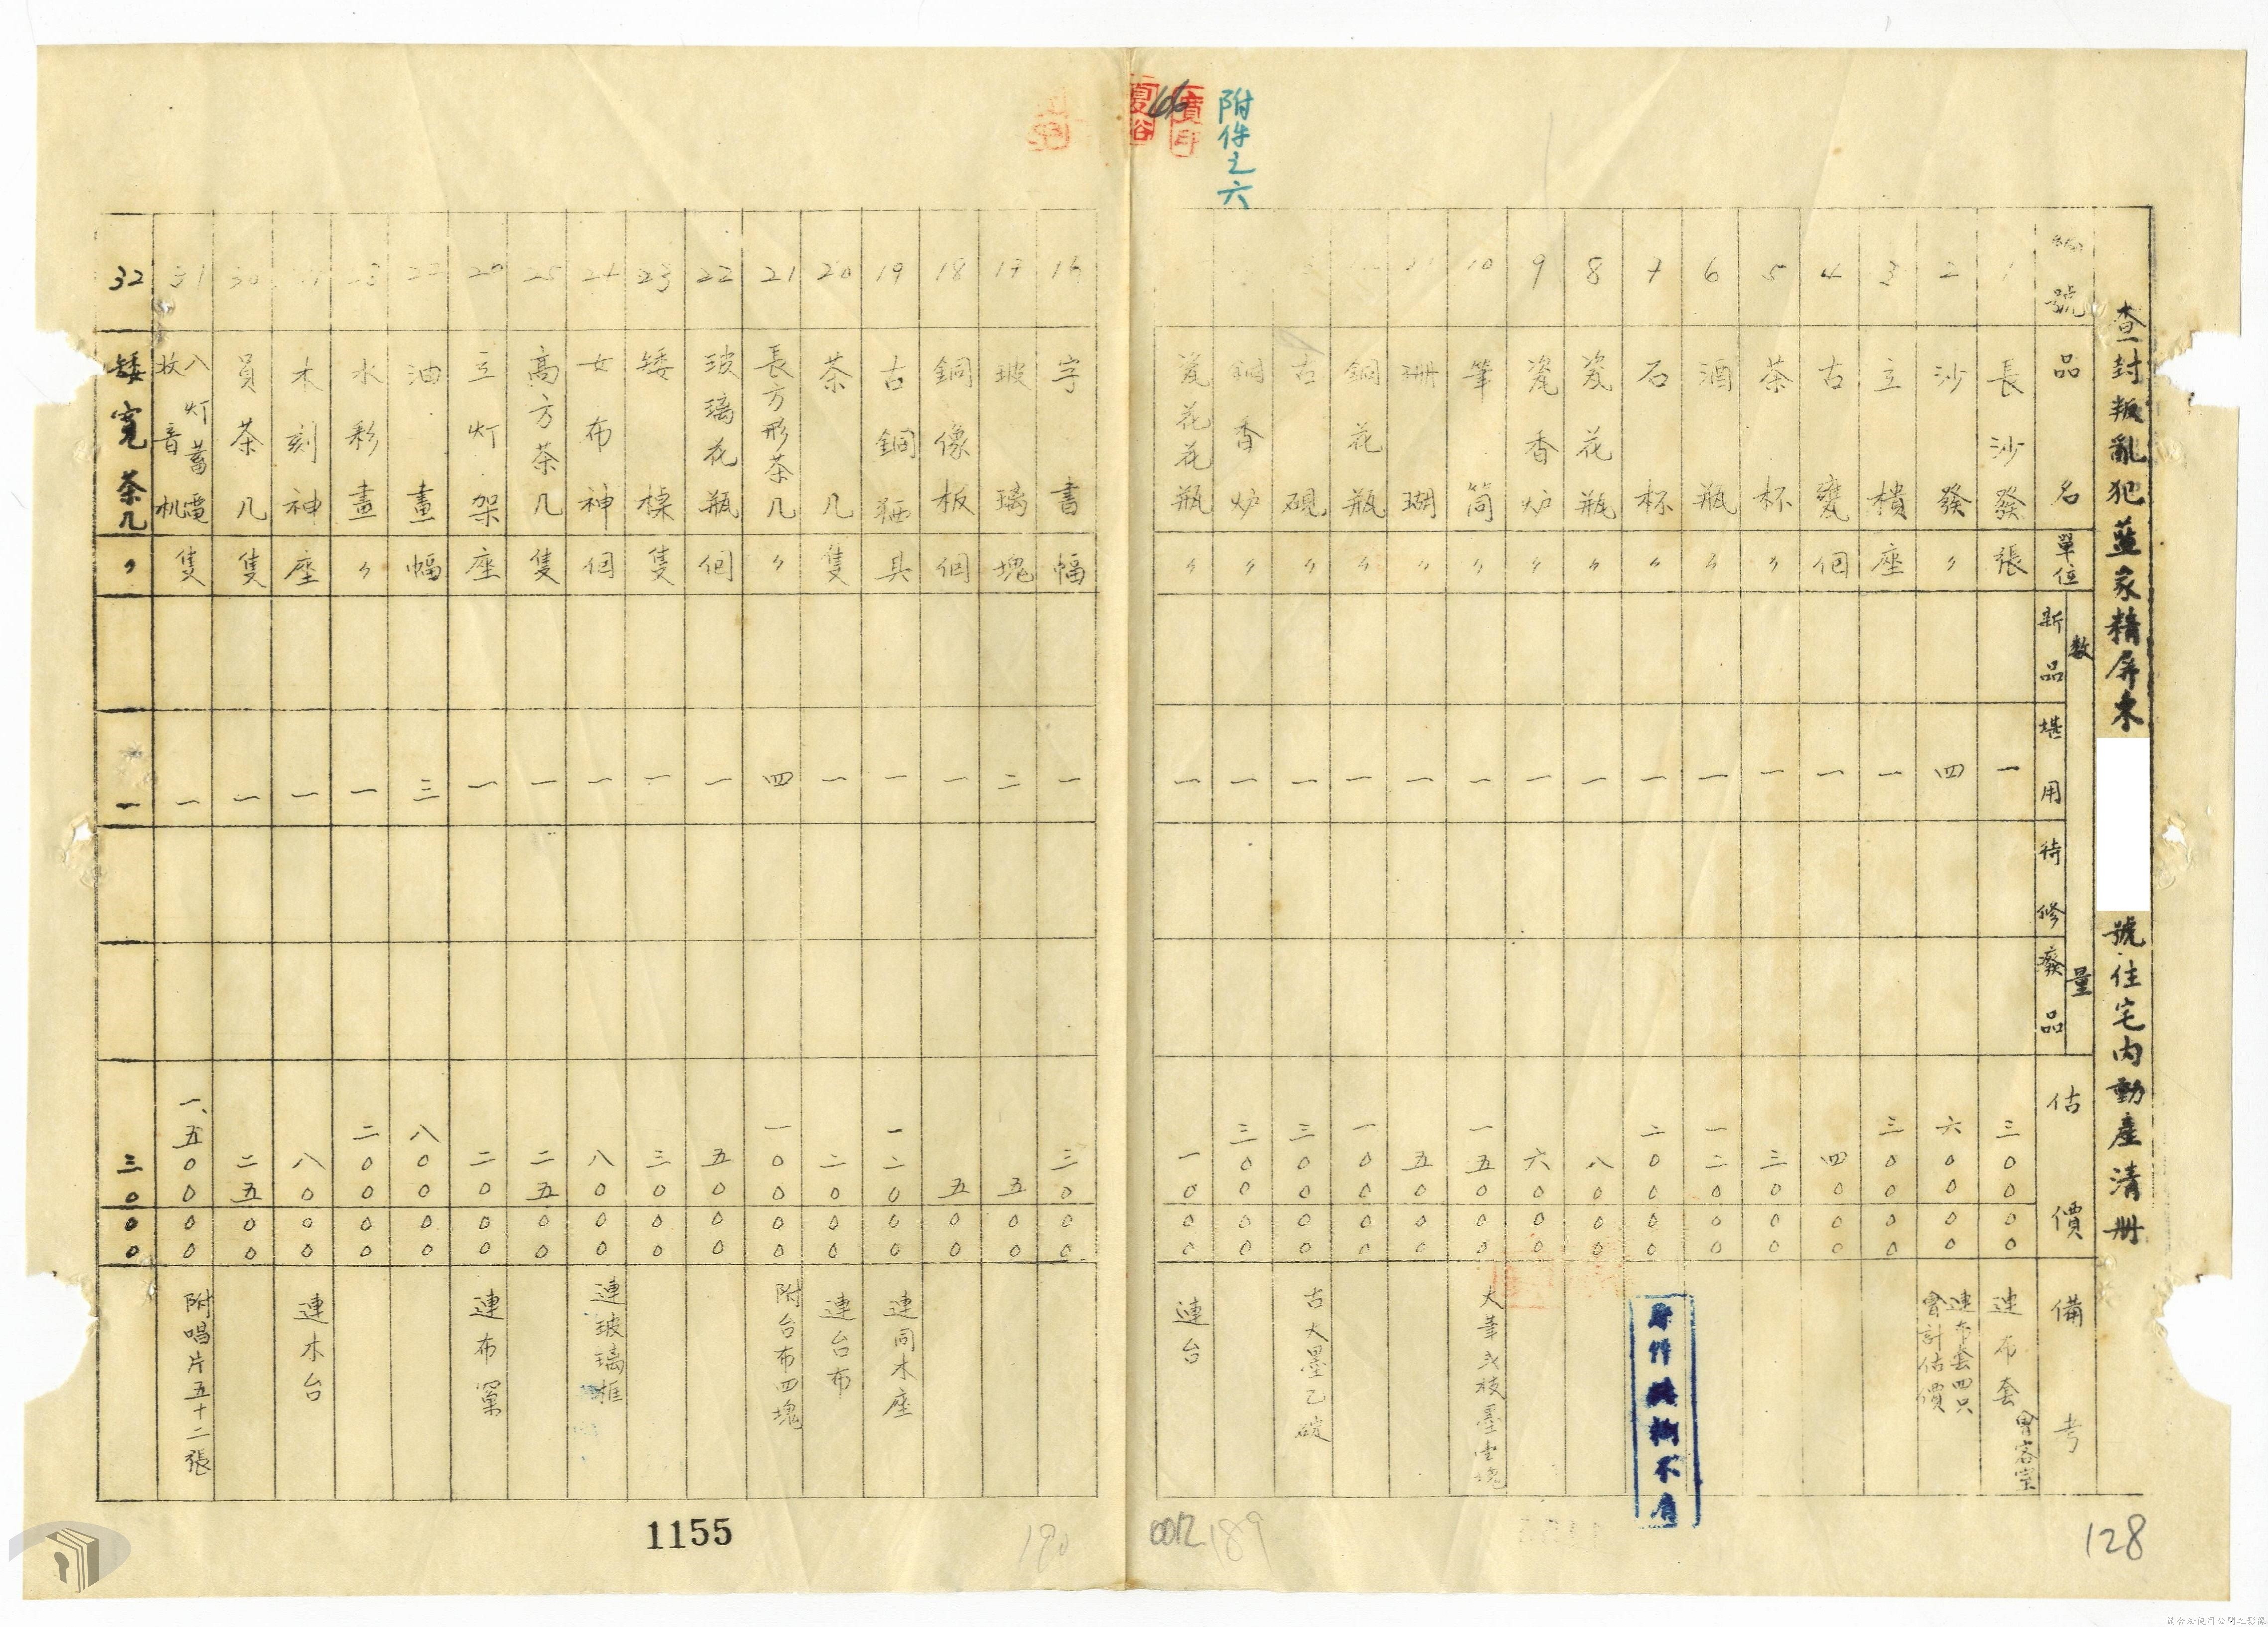 附件之六
查封叛亂犯藍家精屏東
號住宅內動產清册
編號 品名 單位 數量 新品 堪用 待修 廢品 估價 備考
1 長沙發 張 一 三〇〇〇〇 連布套 會客室
2 沙發 〃 四 六〇〇〇〇 連布套四只 會計估價
3 立櫃 座 一 三〇〇〇〇
4 古甕 個 一 四〇〇〇
5 茶杯 〃 一 三〇〇〇
6 酒瓶 〃 一 一二〇〇〇
7 石杯 〃 一 二〇〇〇〇
8 瓷花瓶 〃 一 八〇〇〇
9 瓷香炉 〃 一 六〇〇〇
10 筆筒 〃 一 一五〇〇〇 大筆 枝墨 塊
11 珊瑚 〃 一 五〇〇〇
銅花瓶 〃 一 一〇〇〇〇
古硯 〃 一 三〇〇〇〇 古大墨乙碇
銅香炉 〃 一 三〇〇〇〇
瓷花花瓶 〃 一 一〇〇〇 連台
16 字書 幅 一 三〇〇〇
17 玻璃 塊 二 五〇〇
18 銅像板 個 一 五〇〇
19 古銅 具 一 一二〇〇〇 連同木座
20 茶几 隻 一 二〇〇〇 連台布
21 長方形茶几 〃 四 一〇〇〇〇 附台布四塊
22 玻璃花瓶 個 一 五〇〇〇
23 矮檯 隻 一 三〇〇〇
24 女布神 個 一 八〇〇〇 連玻璃框
25 高方茶几 隻 一 二五〇〇
26 立灯架 座 一 二〇〇〇 連布罩
27 油畫 幅 三 八〇〇〇〇
28 水彩畫 〃 一 二〇〇〇〇
29 木刻神 座 一 八〇〇〇 連木台
30 員茶几 隻 一 二五〇〇
31 八灯蓄電收音机 隻 一 一、五〇〇〇〇 附唱片五十二張
32 矮寬茶几 〃 一 三〇〇〇
1155
190
0012
189
128
請合法使用公開之影像